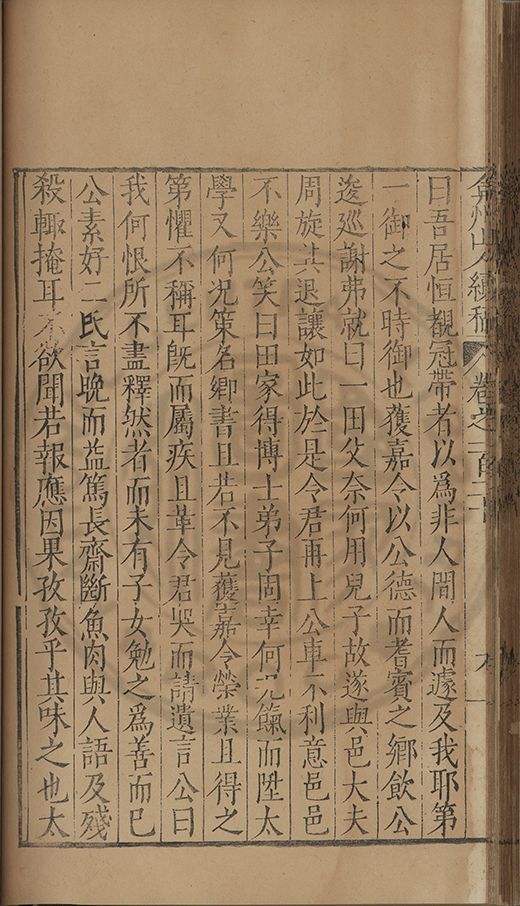 弇州山人續稿 卷之一百二十
曰吾居恒覩冠帶者以爲非人間人而遽及我耶第
一御之不時御也蒦嘉令以公德而耆賓之鄉飲公
逡巡謝弗就曰一田父奈何用兒子故遂與邑大夫
周旋其退讓如此於是令君再上公車不利意邑邑
不樂公笑曰田家得博士弟子固幸何况餼而陞太
學又何况策名卿書且若不見蒦嘉令榮業且得之
第懼不稱耳旣而屬疾且革令君哭而請遺言公曰
我何恨所不盡釋然者而未有子女勉之爲善而已
公素好二氏言晚而益篤長齋斷魚肉與人語及殘
殺輙掩耳不欲聞若報應因果孜孜乎其味之也太